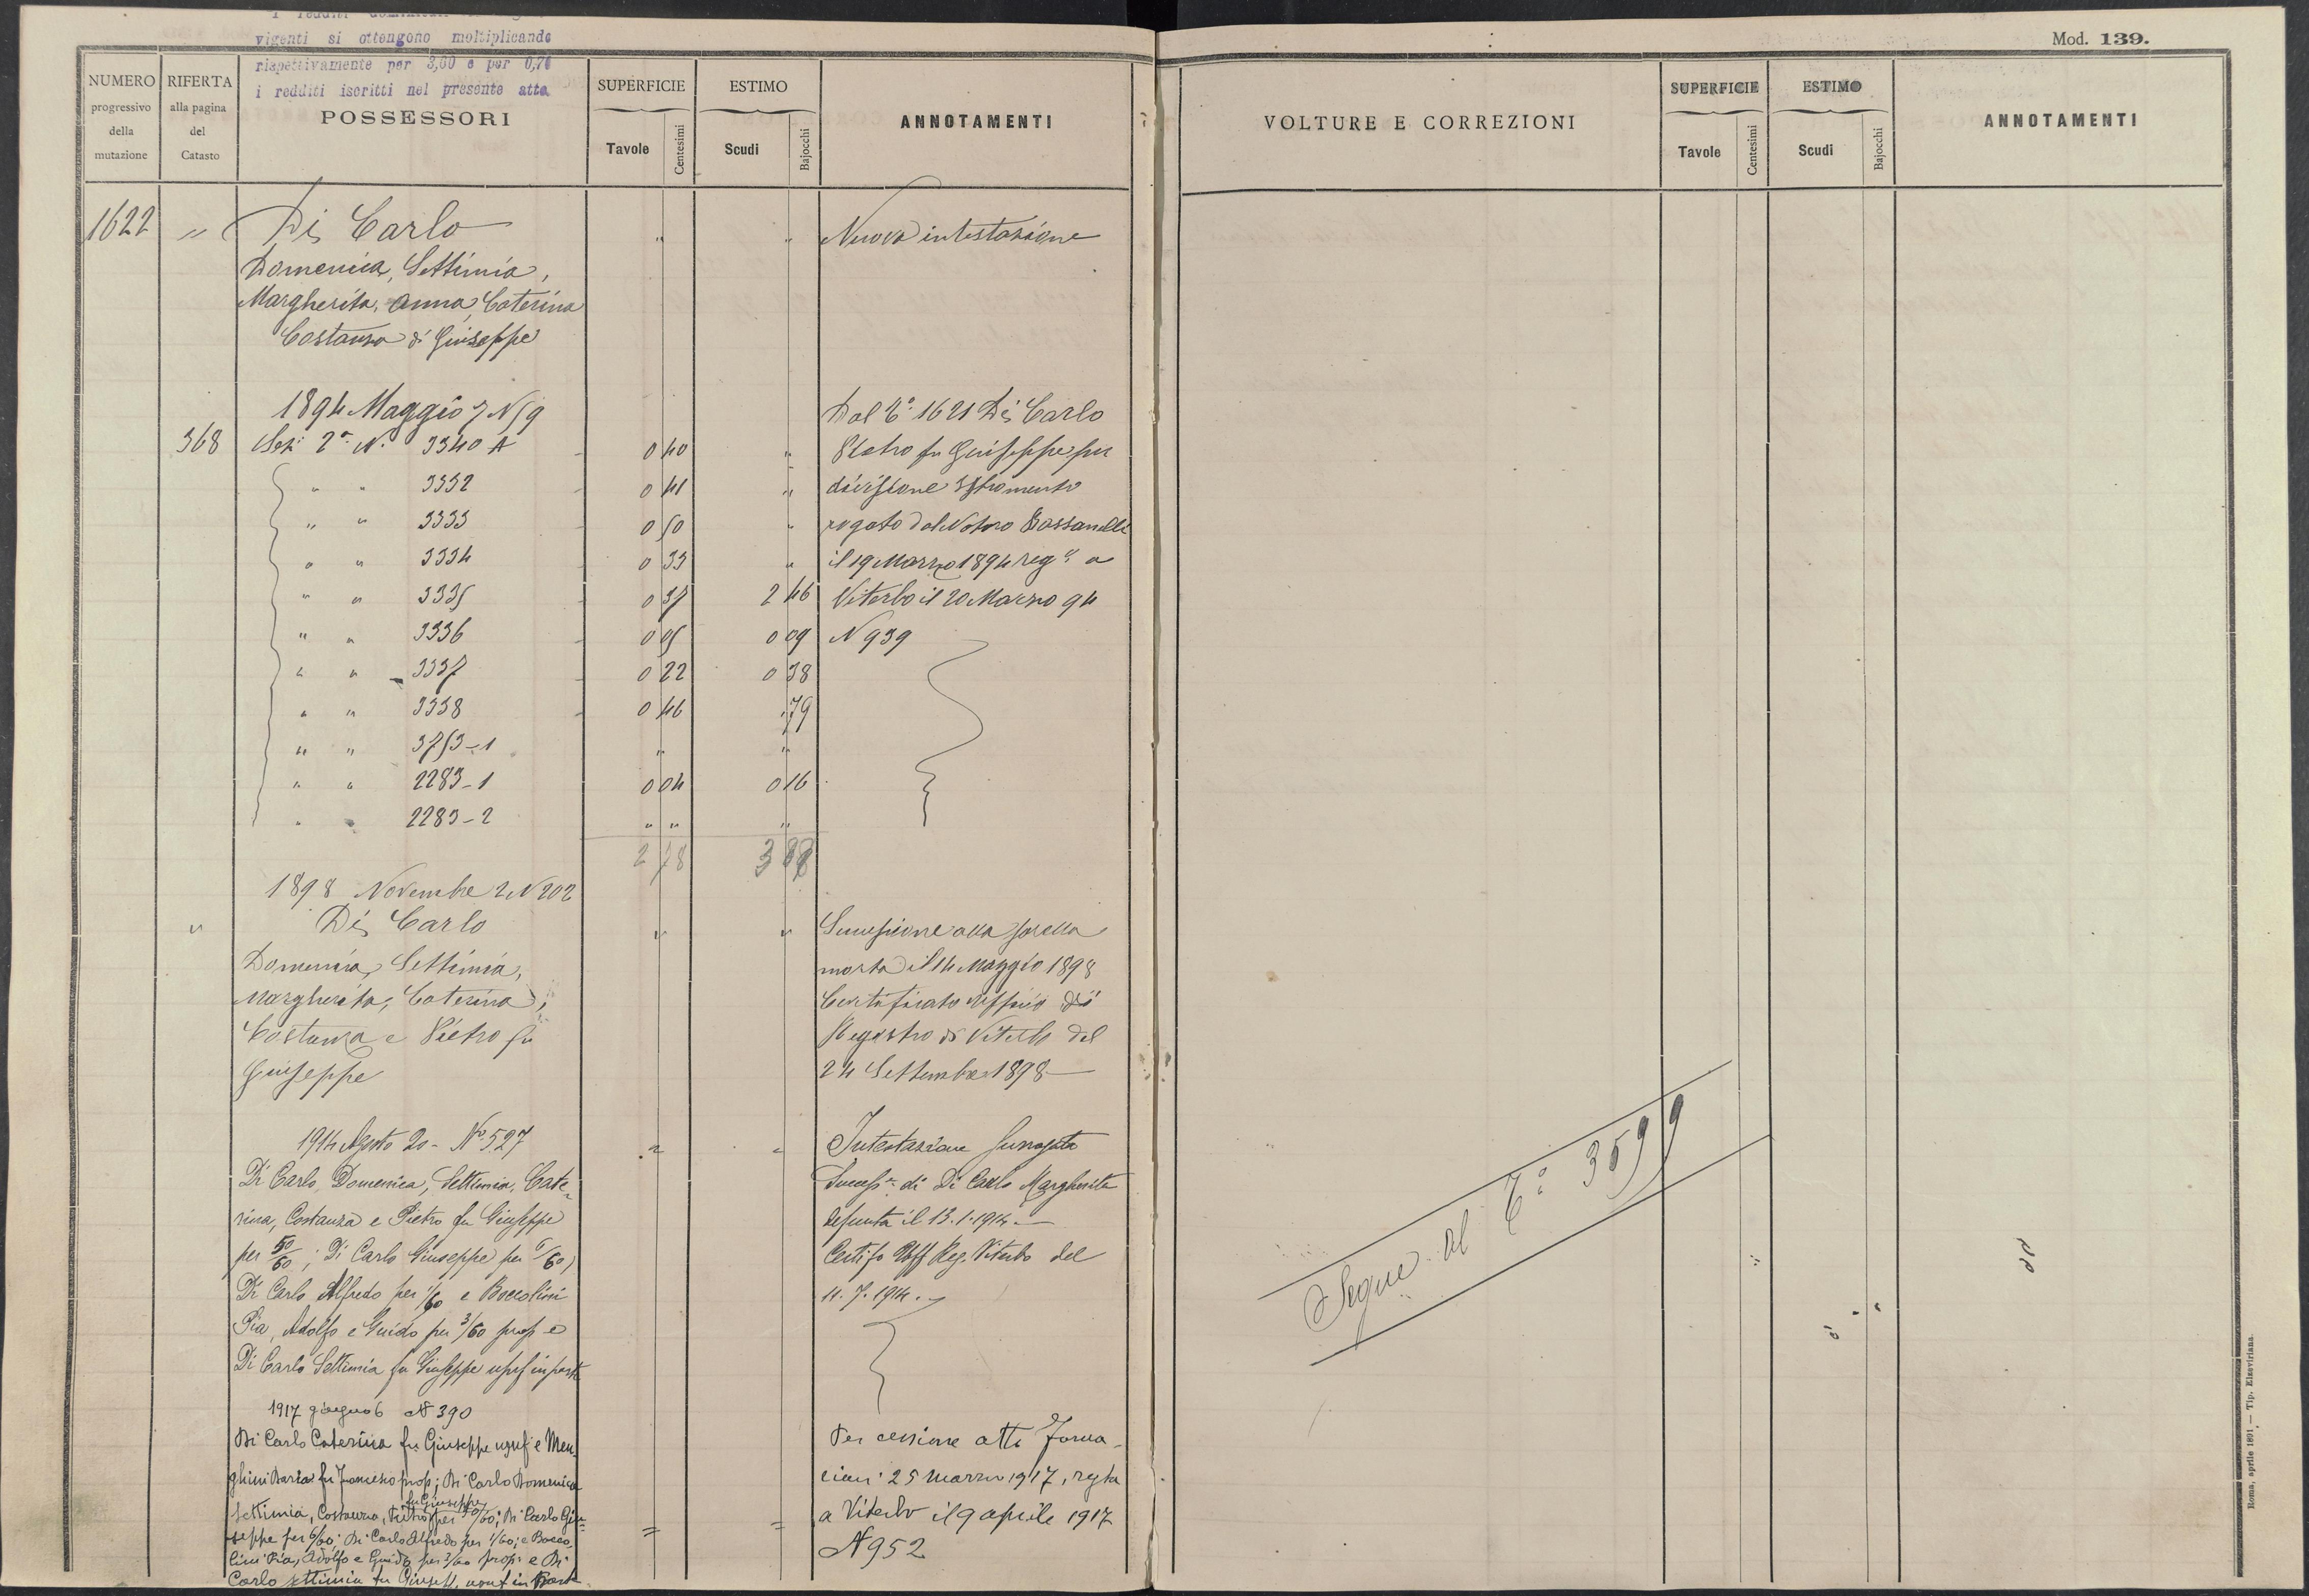 vigenti si ottengono moltiplicando
rispettivamente per 3,60 e per 0,70
i redditi iscritti nel presente atto.
NUMERO progressivo della mutazione
RIFERTA alla pagina del Catasto
POSSESSORI
SUPERFICIE
Tavole Centesimi
ESTIMO
Scudi Bajocchi
ANNOTAMENTI
1622 " Di Carlo " " Nuova intestazione
Domenica, Settimia,
Margherita, Anna, Caterina
Costanza di Giuseppe
1894 Maggio 7 N 9 Dal T.º 1621 Di Carlo
368 Sez. 2ª N. 3340 A 0 40 " Pietro fu Giuseppe per
" " 3332 0 41 " divisione Istromento
" " 3333 0 50 " rogato dal Notaro Bassanelli
" " 3334 0 33 " il 19 Marzo 1894 reg.º a
" " 3335 0 37 2 46 Viterbo il 20 Marzo 94
" " 3336 0 05 0 09 N 939
" " 3337 0 22 0 38
" " 3338 0 46 " 79
" " 3753-1 " "
" " 2283-1 0 04 0 16
" " 2283-2 " " "
2 78 3 88
1898 Novembre 2 N 202
" Di Carlo " " Successione alla sorella
Domenica, Settimia, morta il 14 Maggio 1898
Margherita, Caterina, Certificato Ufficio di
Costanza e Pietro fu Registro di Viterbo del
Giuseppe 24 Settembre 1898
1914 Agosto 20 - Nº 527 " " Intestazione surrogata
Di Carlo, Domenica, Settimia, Cate- Success.e di Di Carlo Margherita
rina, Costanza e Pietro fu Giuseppe defunta il 13.1.1914.
per 50/60; Di Carlo Giuseppe per 6/60, Certif. Uff Reg. Viterbo del
Di Carlo Alfredo per 1/60 e Boccolini 11.7.1914.
Pia, Adolfo e Guido per 3/60 prop e
Di Carlo Settimia fu Giuseppe usuf in parte
1917 giugno 6 N 390
Di Carlo Caterina fu Giuseppe usuf e Men- Per cessione atti Forna-
ghini Maria fu Francesco prop; Di Carlo Domenica ciari 25 marzo 1917, regta
fu Giuseppe
Settimia, Costanza, Pietro per 50/60; Di Carlo Giu- a Viterbo il 9 aprile 1917
seppe per 6/60; Di Carlo Alfredo per 1/60; e Bocco- = = N 952
lini Pia, Adolfo e Guido per 3/60 prop e Di
Carlo Settimia fu Giusepp. usuf in parte
Mod. 139.
VOLTURE E CORREZIONI
SUPERFICIE
Tavole Centesimi
ESTIMO
Scudi Bajocchi
ANNOTAMENTI
Segue al T.º 3599
Roma, aprile 1891 — Tip. Elzeviriana.